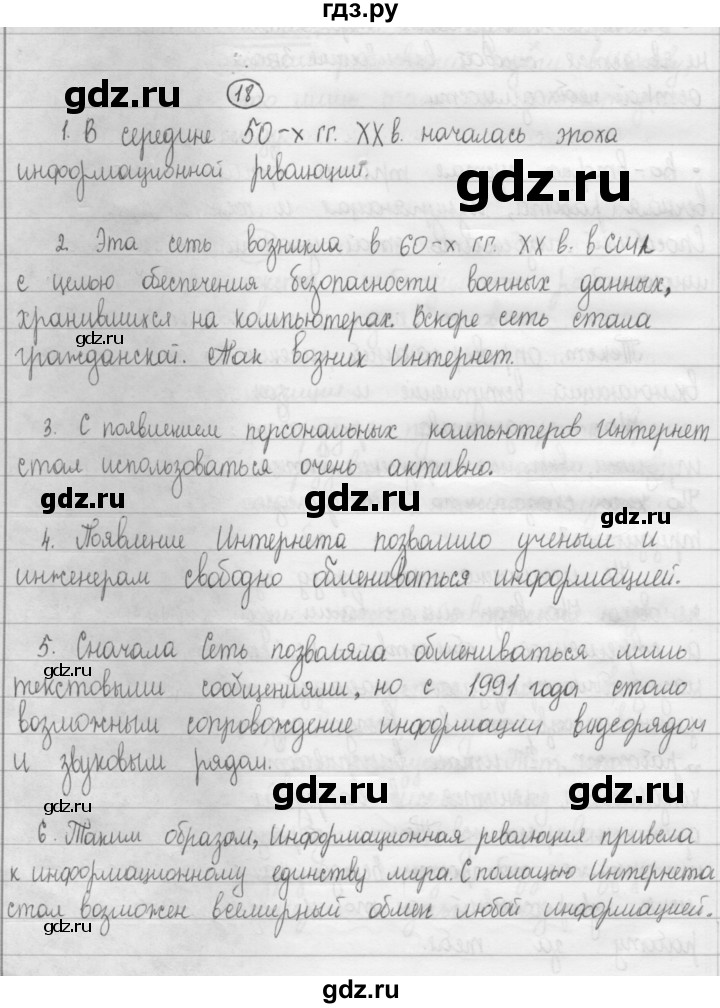 гдз.ру
gdz.ru
18
gdz.ru
1. В середине 50-х гг. XX в. началась эпоха
информационной революции.
gdz.ru
2. Эта сеть возникла в 60-х гг. XX в. в США
с целью обеспечения безопасности военных данных,
хранившихся на компьютерах. Вскоре сеть стала
gdz.ru
гражданской. Так возник Интернет.
3. С появлением персональных компьютеров Интернет
стал использоваться очень активно.
gdz.ru
gdz.ru
gdz.ru
4. Появление Интернета позволило ученым и
инженерам свободно обмениваться информацией.
5. Сначала Сеть позволяла обмениваться лишь
gdz.ru
текстовыми сообщениями, но с 1991 года стало
возможным сопровождение информации видеорядом
и звуковым рядом.
gdz.ru
gdz.ru
gdz.ru
6. Таким образом, Информационная революция привела
к информационному единству мира. С помощью Интернета
стал возможен всемирный обмен любой информацией.
gdz.ru
gdz.ru
gdz.ru